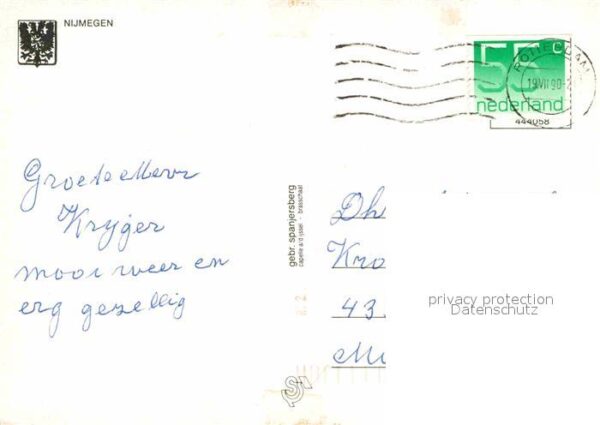 NIJMEGEN
55 c
nederland
ROTTERDAM
19 VII 90
444058
Groete Mevr
Kryger
mooi weer en
erg gezellig
gebr. spanjersberg
capelle a/d ijssel - brasschaat
Dh
Kro
43
privacy protection
Datenschutz